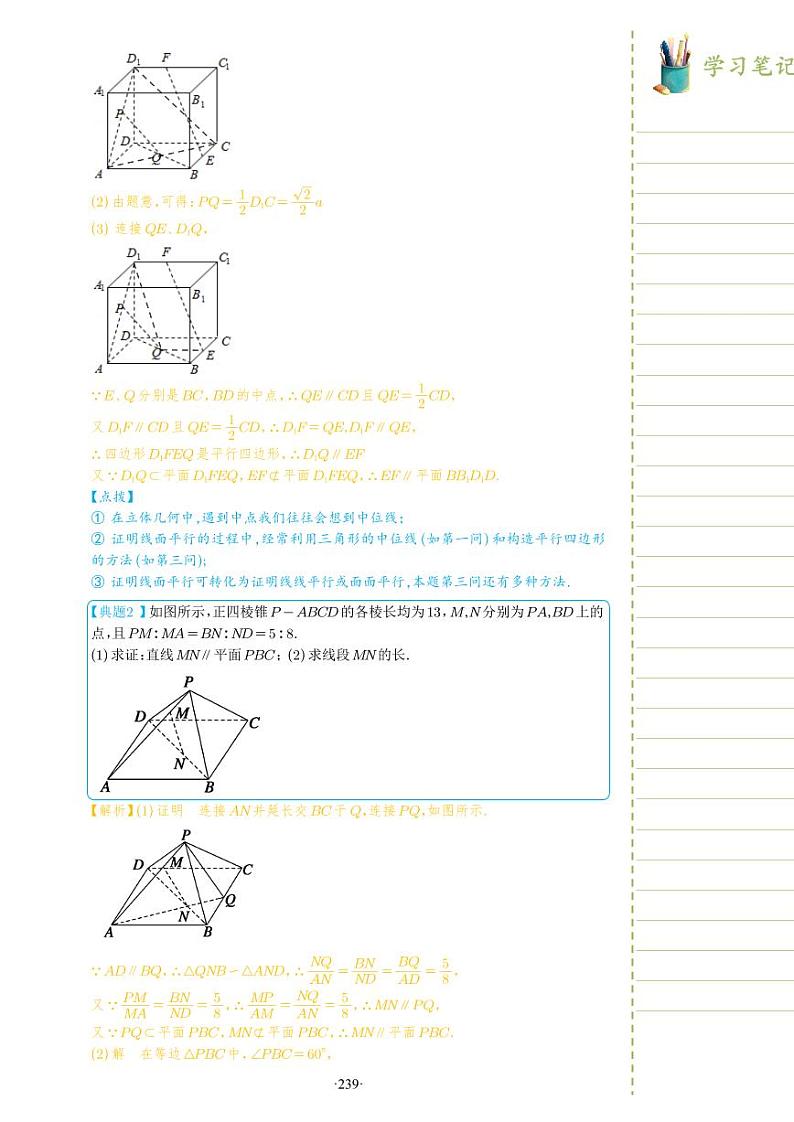 学习笔记
D₁ F C₁
A₁ B₁
P
D C
Q E
A B
(2) 由题意,可得: PQ = 1/2 D₁C = √2/2 a
(3) 连接 QE、D₁Q,
D₁ F C₁
A₁ B₁
P
D C
Q E
A B
∵ E、Q 分别是 BC, BD 的中点, ∴ QE ∥ CD 且 QE = 1/2 CD,
又 D₁F ∥ CD 且 QE = 1/2 CD, ∴ D₁F = QE, D₁F ∥ QE,
∴ 四边形 D₁FEQ 是平行四边形, ∴ D₁Q ∥ EF
又 ∵ D₁Q ⊂ 平面 D₁FEQ, EF ⊄ 平面 D₁FEQ, ∴ EF ∥ 平面 BB₁D₁D.
【点拨】
① 在立体几何中,遇到中点我们往往会想到中位线;
② 证明线面平行的过程中,经常利用三角形的中位线 (如第一问) 和构造平行四边形
的方法 (如第三问);
③ 证明线面平行可转化为证明线线平行或面面平行,本题第三问还有多种方法.
【典题2 】如图所示,正四棱锥 P-ABCD 的各棱长均为 13, M,N 分别为 PA,BD 上的
点,且 PM:MA = BN:ND = 5:8.
(1) 求证:直线 MN ∥ 平面 PBC; (2) 求线段 MN 的长.
P
D M C
N
A B
【解析】(1) 证明 连接 AN 并延长交 BC 于 Q,连接 PQ,如图所示.
P
D M C
Q
N
A B
∵ AD ∥ BQ, ∴ △QNB ∽ △AND, ∴ NQ/AN = BN/ND = BQ/AD = 5/8,
又 ∵ PM/MA = BN/ND = 5/8, ∴ MP/AM = NQ/AN = 5/8, ∴ MN ∥ PQ,
又 ∵ PQ ⊂ 平面 PBC, MN ⊄ 平面 PBC, ∴ MN ∥ 平面 PBC.
(2) 解 在等边 △PBC 中, ∠PBC = 60°,
·239·